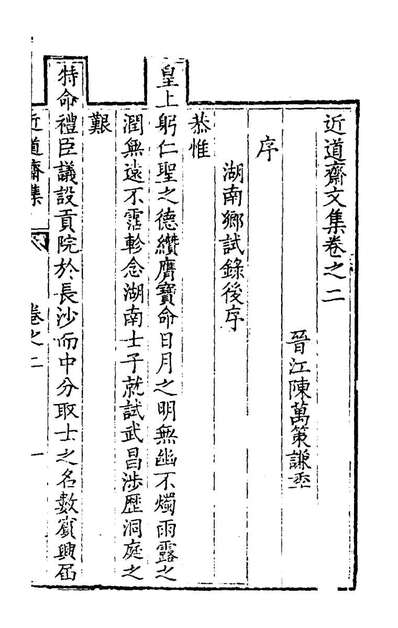 近道齋文集卷之二
晉江陳萬策謙季
序
湖南鄉試錄後序
恭惟
皇上躬仁聖之德纘膺寶命日月之明無幽不燭雨露之
潤無遠不霑軫念湖南士子就試武昌涉歷洞庭之
艱
特命禮臣議設貢院於長沙而中分取士之名數賓興屆
近道齋文集 卷之二 一